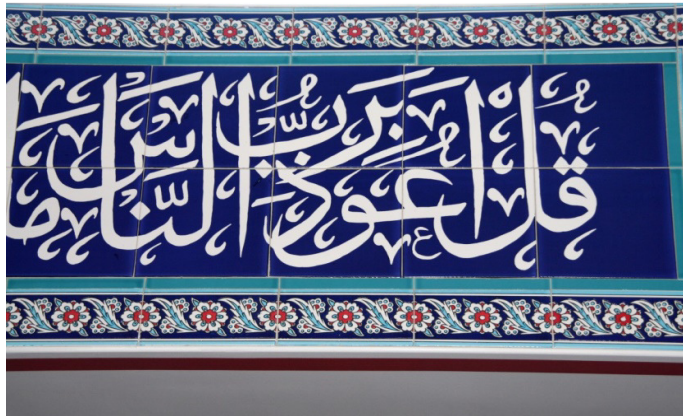 قُلْ اَعُوذُ بِرَبِّ النَّاسِ